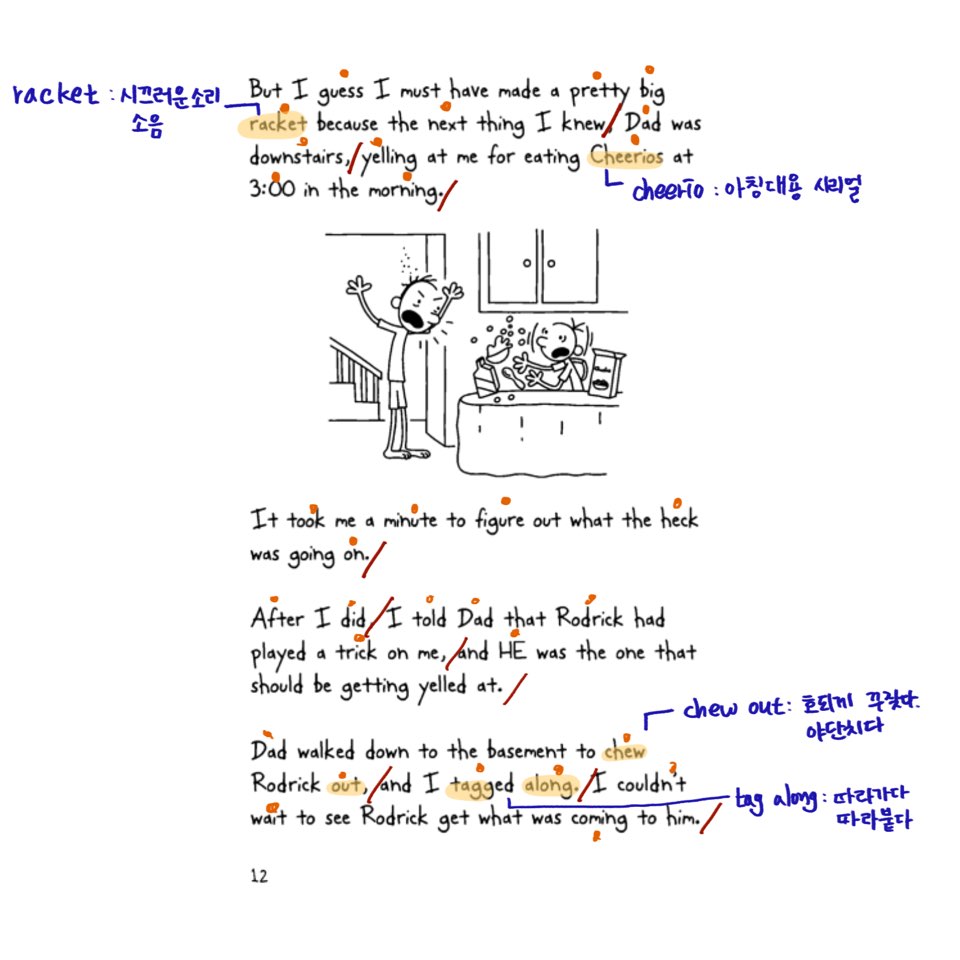 But I guess I must have made a pretty big
racket : 시끄러운소리
소음
racket because the next thing I knew, Dad was
downstairs, yelling at me for eating Cheerios at
3:00 in the morning.
cheerio : 아침대용 시리얼
It took me a minute to figure out what the heck
was going on.
After I did, I told Dad that Rodrick had
played a trick on me, and HE was the one that
should be getting yelled at.
chew out : 호되게 꾸짖다.
야단치다
Dad walked down to the basement to chew
Rodrick out, and I tagged along. I couldn't
tag along : 따라가다
따라붙다
wait to see Rodrick get what was coming to him.
12